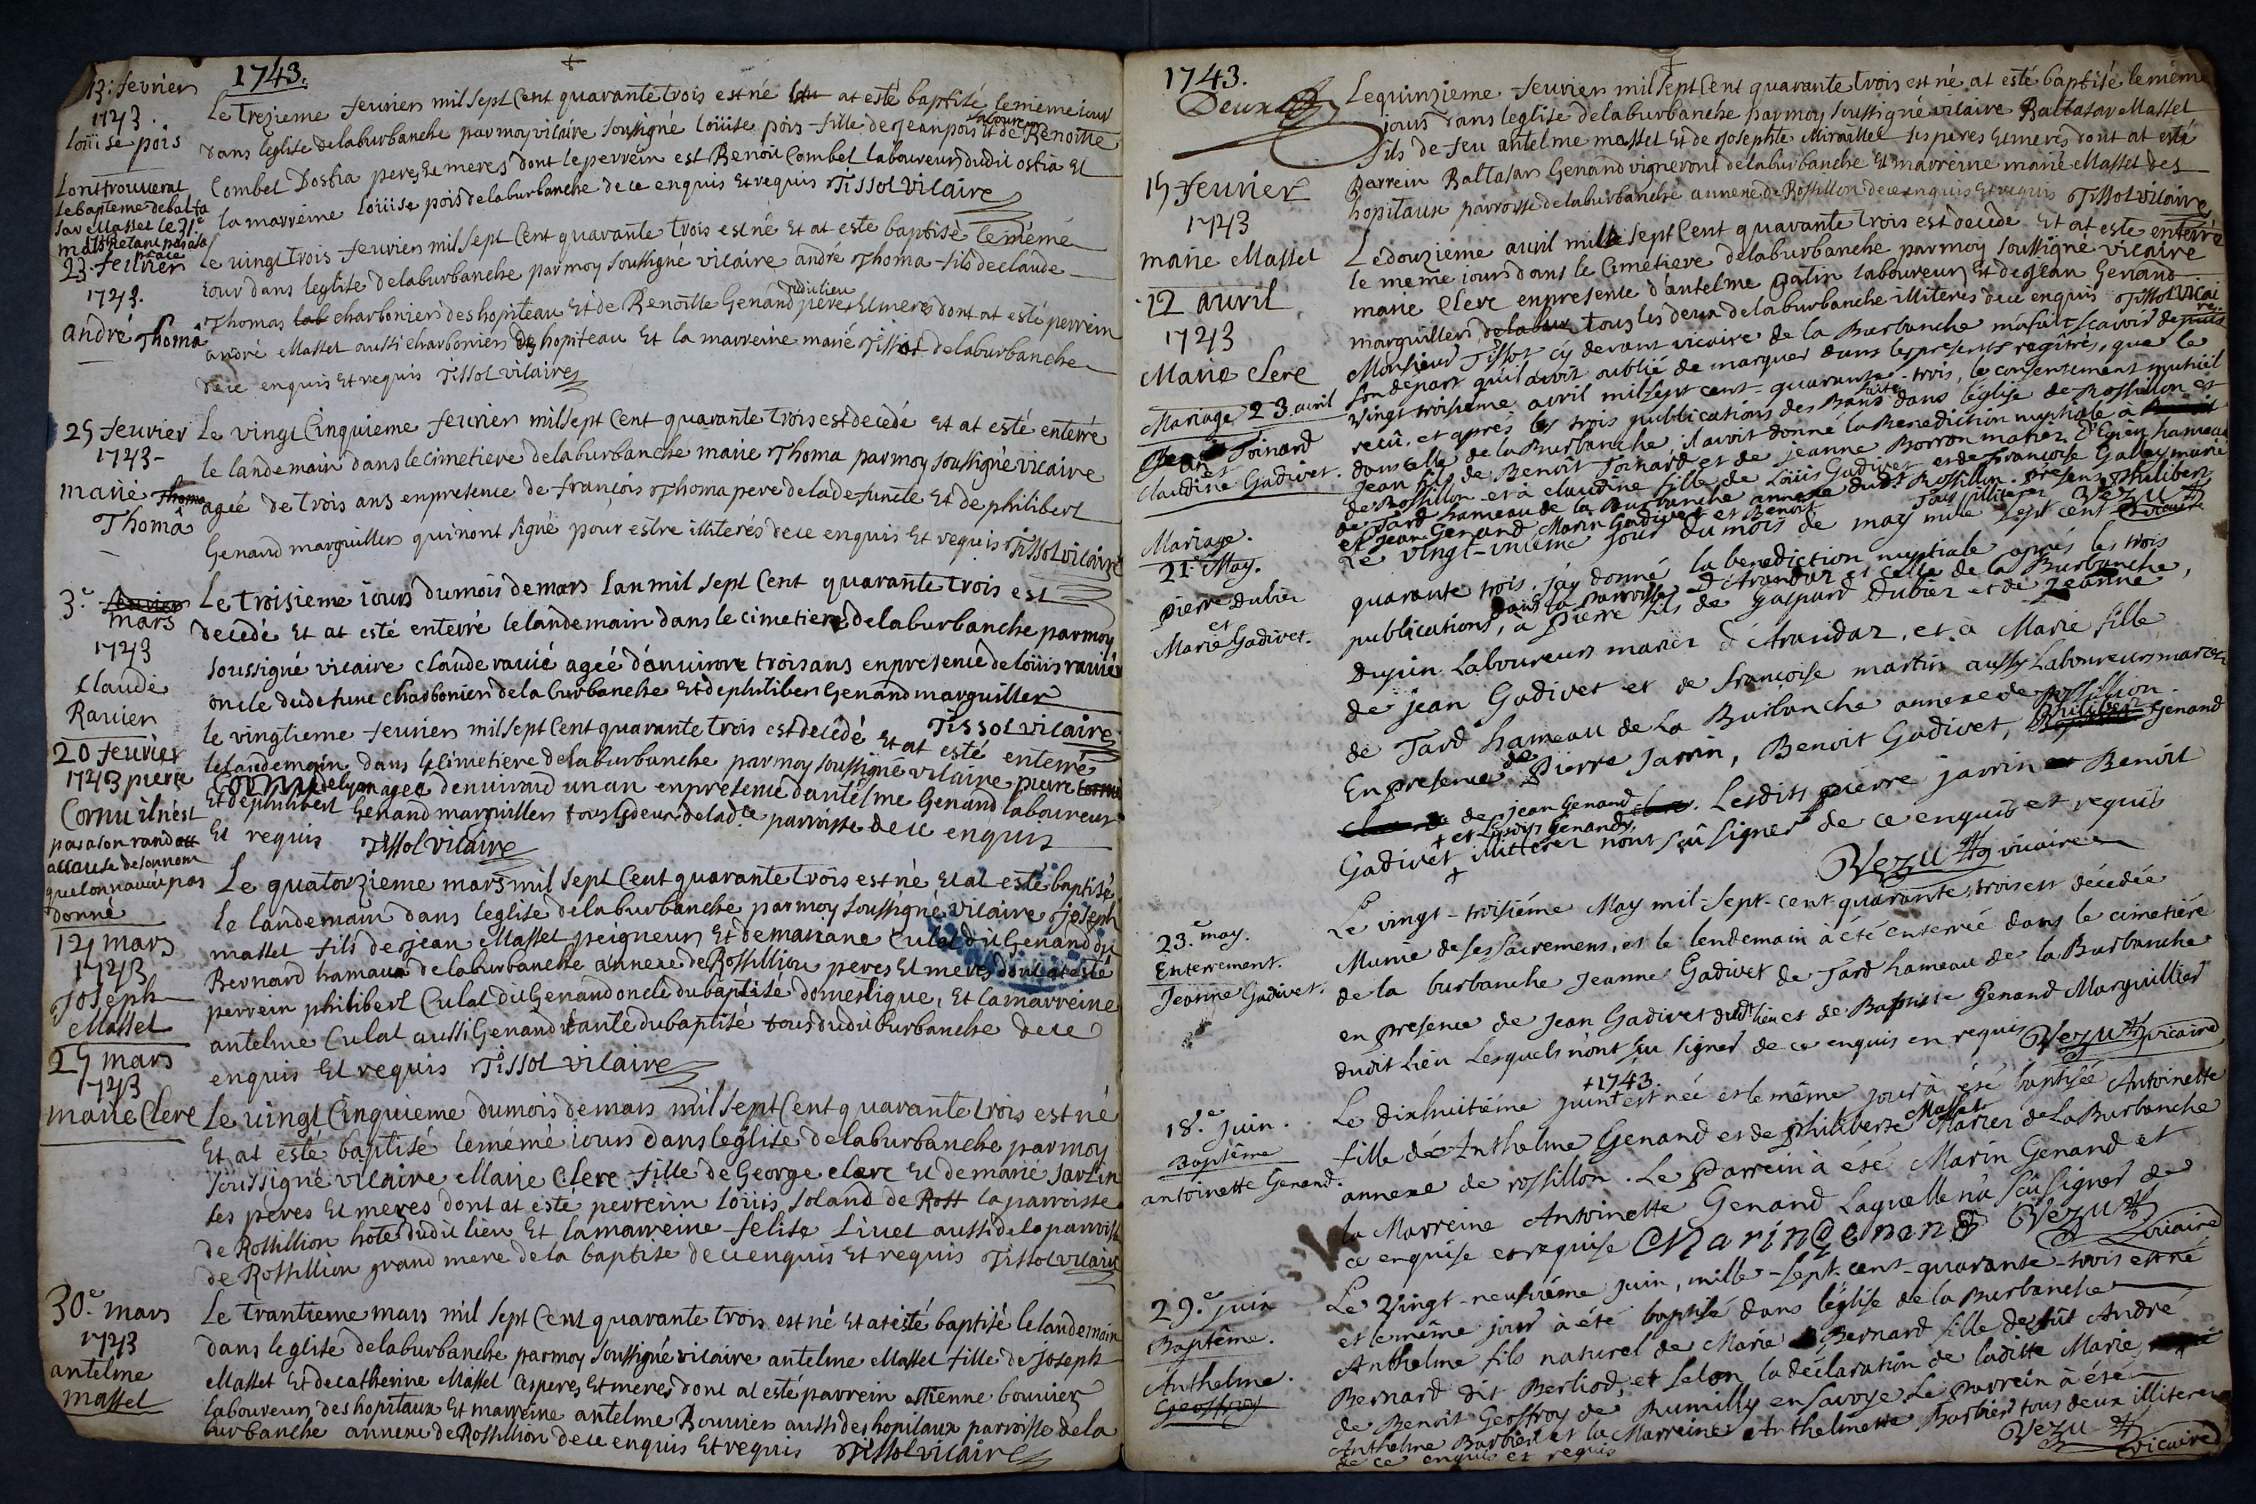 1743.
13: fevrier
1743.
Loüise pois
Le trezieme feuvrier mil sept Cent quarante trois est né at esté baptisé le meme iour
dans leglise de laburbanche par moy vicaire soussigné Loüise pois fille de jean pois laboureur et de Benoitte
Combet Dostia peres et meres dont le perrein est Benoit Combet laboureur dudit ostia et
la marréine Loüise pois de laburbanche de ce enquis et requis Tissot vicaire
Lon trouverat
le bapteme de balta
sar Massel le 31e
mars netant pas a sa
place
23 feuvrier
1743.
andré Thoma
Le vingt trois feuvrier mil sept Cent quarante trois est né et at esté baptisé le méme
iour dans leglise de laburbanche par moy soussigné vicaire andré Thoma fils de claude
Thomas lab charbonier des hopiteau et de Benoitte Genand dudit lieu pere et mere dont at esté perrein
andré Massel aussi charbonier des hopiteau et la marreine marie Tissot de laburbanche
de ce enquis et requis Tissot vicaire
25 feuvrier
1743
marie Thoma
Thoma
Le vingt Cinquieme feuvrier mil sept Cent quarante trois est decedé et at esté enterré
le landemain dans le cimetiere de laburbanche marie Thoma par moy soussigné vicaire
ageé de trois ans en presence de françois Thoma pere de la defuncte et de philibert
Genand marguillier qui nont signé pour estre illiterés de ce enquis et requis Tissot vicaire
3.e feuvrier
mars
1743
Claude
Ravier
Le troisieme iour du mois de mars lan mil sept Cent quarante trois est
decedé et at esté enterré le landemain dans le cimetiere de laburbanche par moy
soussigné vicaire claude ravié ageé d'anviron trois ans en presence de loüis ravié
oncle du defunc charbonier de la burbanche et de philibert Genand marguillier
Tissot vicaire
20 feuvrier
1743 pierre
Cornu il n'est
pas a son rand
a cause de son nom
que lon navait pas
donné
le vingtieme feuvrier mil sept Cent quarante trois est decedé et at esté enterré
le landemain dans le cimetiere de laburbanche par moy soussigné vicaire pierre cornu
Cornu de lyon ageé denvirond un an en presence dantelme Genand laboureur
et de philibert Genand marguillier tous les deux de lad.te parroisse de ce enquis
et requis Tissot vicaire
14 mars
1743
Joseph
Massel
Le quatorzieme mars mil sept Cent quarante trois est né et at esté baptisé
le landemain dans leglise de laburbanche par moy soussigné vicaire joseph
massel fils de jean Massel peigneur et de mariane Culat dit Genand du
Bernard hamaux de laburbanche annexe de Rossillion peres et meres dont at esté
perrein philibert Culat dit Genand oncle du baptisé domestique, et la marreine
antelme Culat aussi Genand tante du baptisé tous dudit burbanche de ce
enquis et requis Tissot vicaire
25 mars
1743
marie Clere
Le vingt Cinquieme du mois de mars mil sept Cent quarante trois est né
et at esté baptisé le méme iour dans leglise de laburbanche par moy
soussigné vicaire Marie Clere fille de George clere et de marie Jarlin
ses peres et meres dont at esté perrein loüis soland de Ross la parroisse
de Rossillion hote dudit lieu et la marreine felise Livet aussi de la parroisse
de Rossillion grand mere de la baptisé de ce enquis et requis Tissot vicaire
30.e mars
1743
antelme
massel
Le trantieme mars mil sept Cent quarante trois est né et at esté baptisé le landemain
dans leglise de laburbanche par moy soussigné vicaire antelme Massel fille de joseph
Massel et de catherine Massel ces peres et meres dont at esté parrein etienne bouvier
laboureur des hopitaux et marreine antelme Bouvier aussi des hopitaux parroisse de la
burbanche annexe de Rossillion de ce enquis et requis Tissot vicaire
1743.
Deux
15 feuvrier
1743
marie Massel
Le quinzieme feuvrier mil sept Cent quarante trois est né at esté baptisé le méme
jour dans leglise de laburbanche par moy soussigné vicaire Baltasar Massel
fils de feu antelme massel et de josephte Miraillet ses peres et meres dont at esté
Parrein Baltasar Genand vigneront de laburbanche et marreine marie Massel des
hopitaux parroisse de laburbanche annexe de Rossillon de ce enquis et requis Tissot vicaire
12 avril
1743
Marie Clere
Le douzieme avril mille sept Cent quarante trois est decedé et at esté enterré
le meme iour dans le cimetiere de laburbanche par moy soussigné vicaire
marie Clere en presence d'antelme patin laboureur et de jean Genand
marguillier de labur tous les deux de laburbanche illiterés de ce enquis Tissot vicaire
Mariage 23. avril
Jean Poinard
et
Claudine Gadivet.
Monsieur Tissot cy devant vicaire de la Burbanche m'a fait scavoir depuis
son depart qu'il avoit oublié de marquer dans les presents regitres, que le
vingt troisieme avril mil sept cent quarante trois, le consentement mutuël
reçu, et aprés les trois publications des Bans faites dans l'église de Rossillon et
dans celle de la Burbanche il avoit donné la Benediction nuptiale a
Jean fils de Benoit Poinard et de jeanne Borron mariez D'Egieu hameau
de Rossillon et à claudine fille de Loüis Gadivet et de françoise Gallay mariez
de Tard hameau de la Burbanche annexe dud.t Rossillon. presens philibert
et jean Genand, Marin Gadivet et Benoit tous illiterez Vezu vicaire
Mariage.
21.e May.
pierre dubier
et
Marie Gadivet.
Le vingt-unieme jour du mois de may mille sept cent
quarante trois. j'ay donné la benediction nuptiale aprés les trois
publications, dans la parroisse d'Arandaz et celle de la Burbanche,
à pierre fils de gaspard dubier et de jeanne
dupin Laboureurs mariez d'Arandaz, et à Marie fille
de jean Gadivet et de françoise martin aussy Laboureurs mariez
de Tard hameau de La Burbanche annexe de Rossillion.
En presence de Pierre Jarrin, Benoit Gadivet, philibert Genand
de jean Genand. Lesdits pierre jarrin et Benoit
Gadivet + et lesdits Genands, illitterez n'ont sçu signer de ce enquis et requis
Vezu vicaire
23.e may.
Enterrement.
Jeanne Gadivet.
Le vingt-troisiéme May mil-sept-cent-quarante trois est décedée
Munie de ses sacremens, et le lendemain à été enterrée dans le cimetiére
de la burbanche Jeanne Gadivet de Tard hameau de la Burbanche
en presence de Jean Gadivet dud.t lieu et de Baptiste Genand Marguillier
dudit Lieu Lesquels n'ont sçu signer de ce enquis en requis Vezu vicaire
18.e juin.
Baptême
antoinette Genand.
+1743.
Le dixhuitiéme juin + est née et le même jour à été baptisée Antoinette
fille de Anthelme Genand et de philiberte Massel Mariez de La Burbanche
annexe de rossillon. Le Parrein à été Marin Genand et
la Marreine Antoinette Genand Laquelle n'a sçu signer de
ce enquise et requise Marin Genand Vezu vicaire
29.e juin
Baptême.
Anthelme.
Geoffroy
Le Vingt-neufviéme juin, mille-sept-cent-quarante-trois est né
et le même jour à été baptisé dans l'église de la Burbanche
Anthelme fils naturel de Marie Bernard fille de fût André
Bernard dit Berliod, et selon la déclaration de laditte Marie,
de Benoit Geoffroy de Rumilly en Savoye. Le parrein à été
Anthelme Barbier et la Marreine Anthelmette Barbier tous deux illiterez
de ce enquis et requis Vezu vicaire